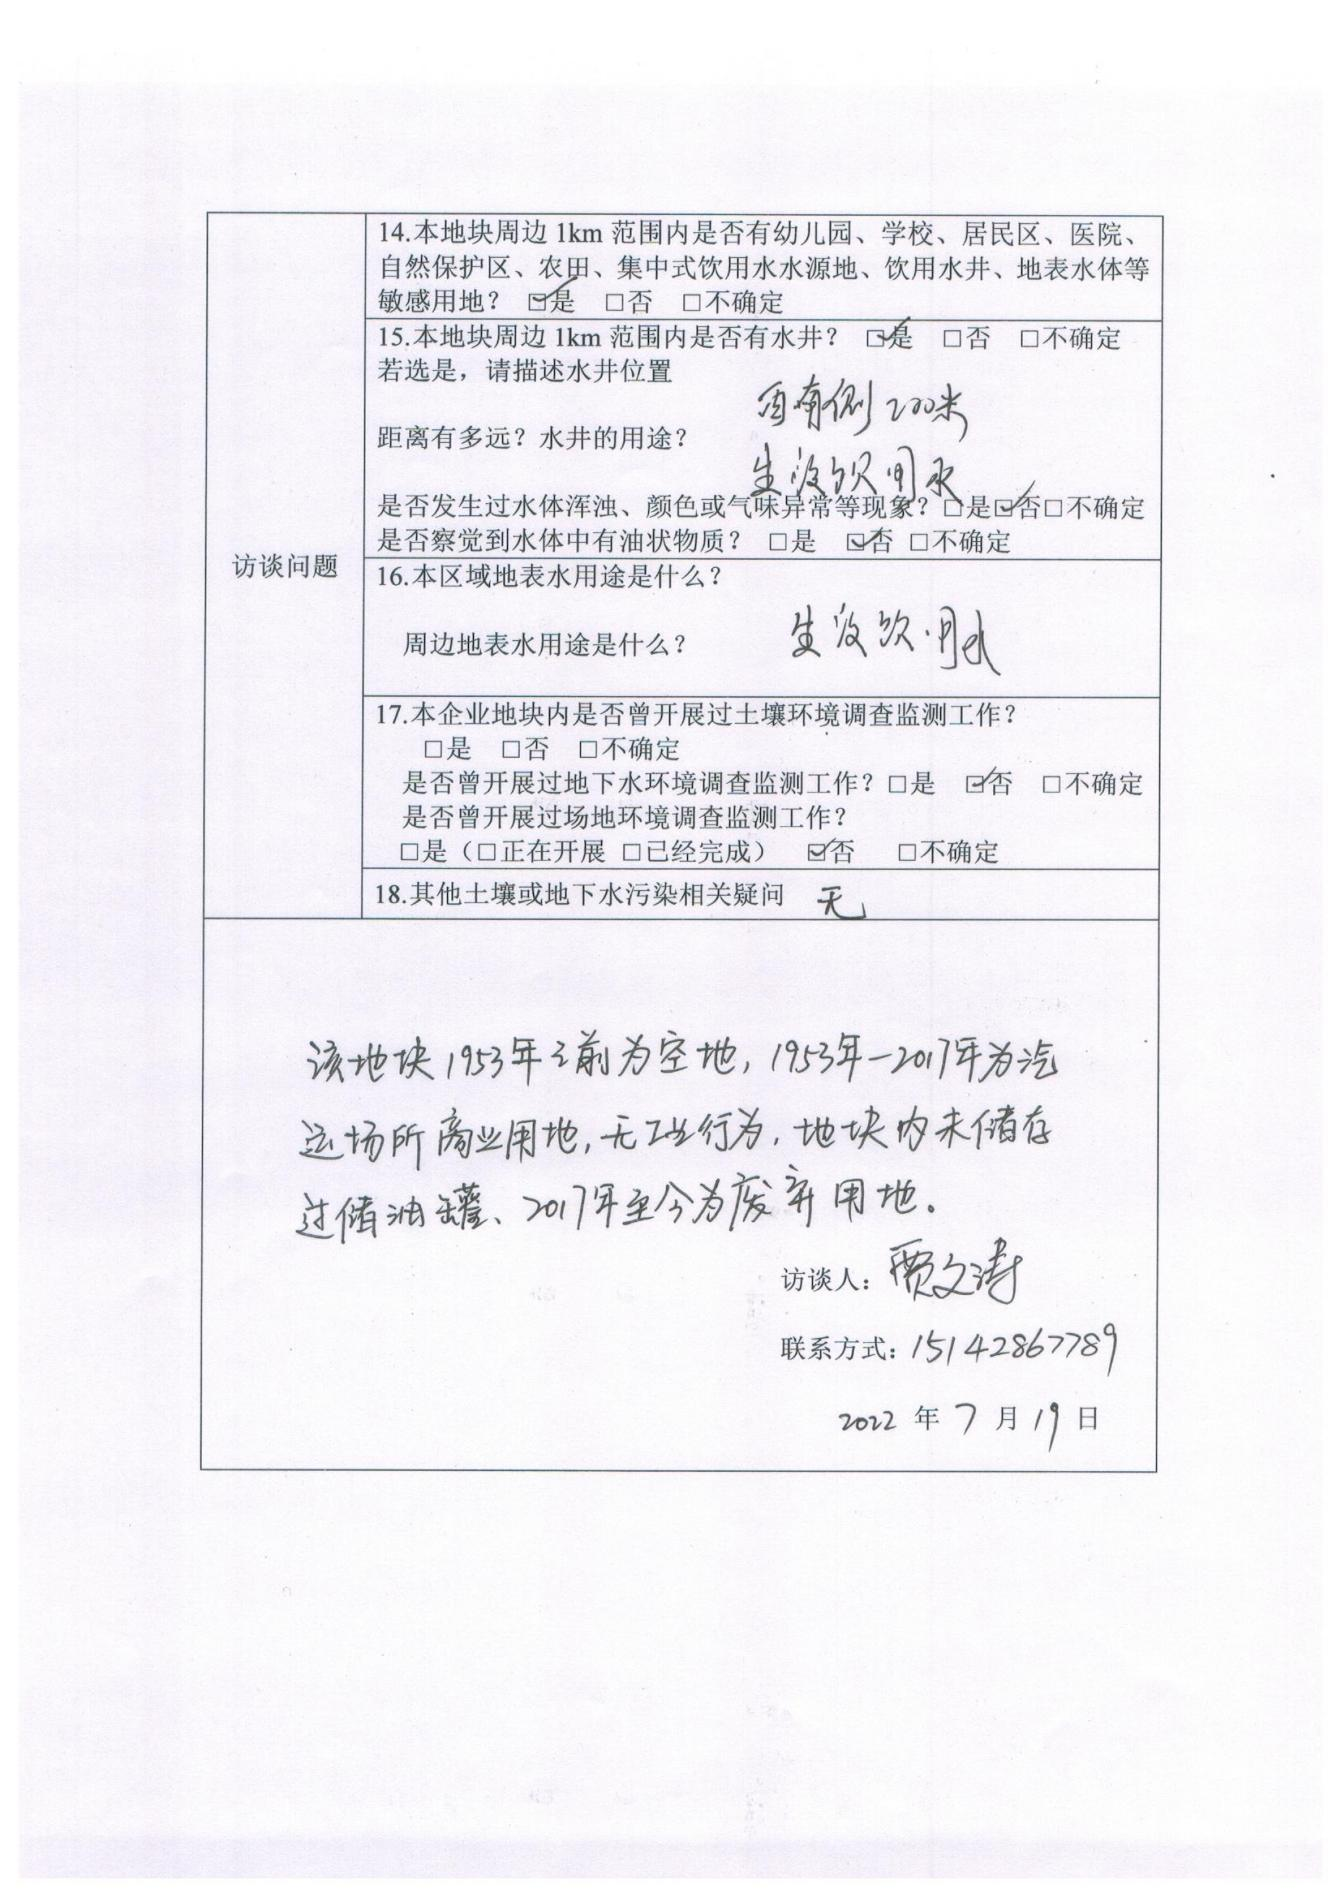 14.本地块周边 1km 范围内是否有幼儿园、学校、居民区、医院、
自然保护区、农田、集中式饮用水水源地、饮用水井、地表水体等
敏感用地？ ☑是 □否 □不确定
15.本地块周边 1km 范围内是否有水井？ ☑是 □否 □不确定
若选是，请描述水井位置
西南侧200米
距离有多远？水井的用途？
生活饮用水
是否发生过水体浑浊、颜色或气味异常等现象？□是☑否□不确定
是否察觉到水体中有油状物质？ □是 ☑否 □不确定
访谈问题
16.本区域地表水用途是什么？
周边地表水用途是什么？ 生活饮用水
17.本企业地块内是否曾开展过土壤环境调查监测工作？
□是 □否 □不确定
是否曾开展过地下水环境调查监测工作？□是 ☑否 □不确定
是否曾开展过场地环境调查监测工作？
□是（□正在开展 □已经完成） ☑否 □不确定
18.其他土壤或地下水污染相关疑问 无
该地块1953年之前为空地，1953年-2017年为汽
运场所商业用地，无工业行为，地块内未储存
过储油罐、2017年至今为废弃用地。
访谈人：贾文涛
联系方式：15142867789
2022 年 7 月 19 日